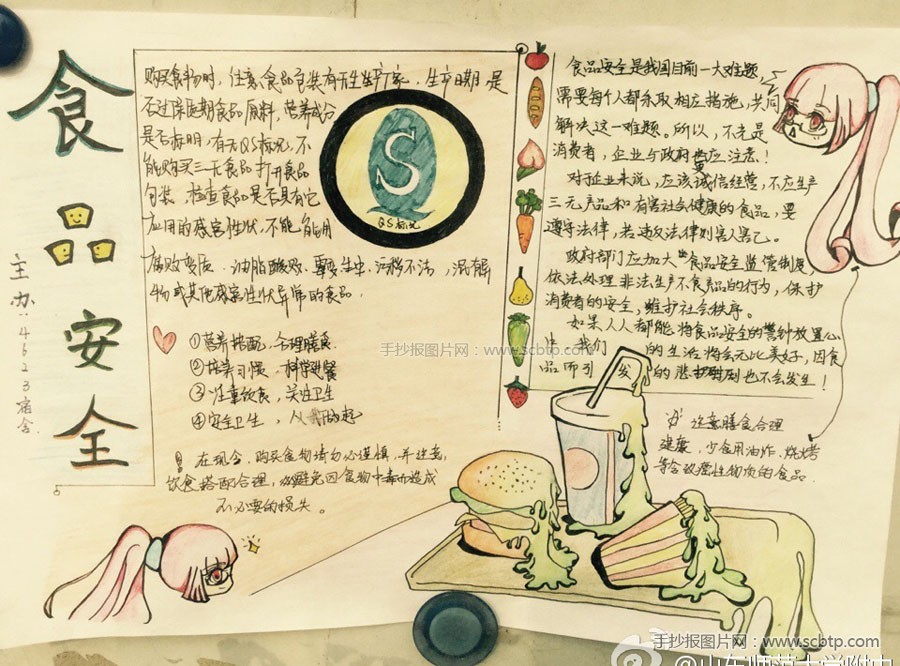 食品安全
主办：4623宿舍
购买食物时，注意食品包装有无生产厂家，生产日期，是
否过保质期食品原料，营养成分
是否标明，有无QS标识，不
能购买三无食品打开食品
包装，检查食品是否具有它
应用的感官性状，不能食用
腐败变质，油脂酸败，霉变，生虫，污秽不洁，混解
物或其他感官性状异常的食品．
S
QS标识
①营养搭配，合理膳食
②培养习惯，科学进餐
③注重饮食，关注卫生
④安全卫生，
在现今，购买食物请勿必谨慎，并注意，
饮食搭配合理，以避免因食物中毒而造成
不必要的损失。
食品安全是我国目前一大难题
需要每个人都采取相应措施，共同
解决这一难题。所以，不光是
消费者，企业与政府更应注意！
对于企业来说，应该诚信经营，不应生产
三无产品和有害社会健康的食品，要
遵守法律，若违反法律则害人害己。
政府部门应加大"食品安全监管制度，
依法处理非法生产不良食品的行为，保护
消费者的安全，维护社会秩序。
如果人人都能将食品安全的警钟放置心
中，我们的生活将会无比美好，因食
品而引发的悲剧也不会发生！
注意膳食合理
健康，少食用油炸，烧烤
等含致癌性物质的食品
手抄报图片网：www.scbtp.com
手抄报图片网：www.scbtp.com
@山东师范大学附中